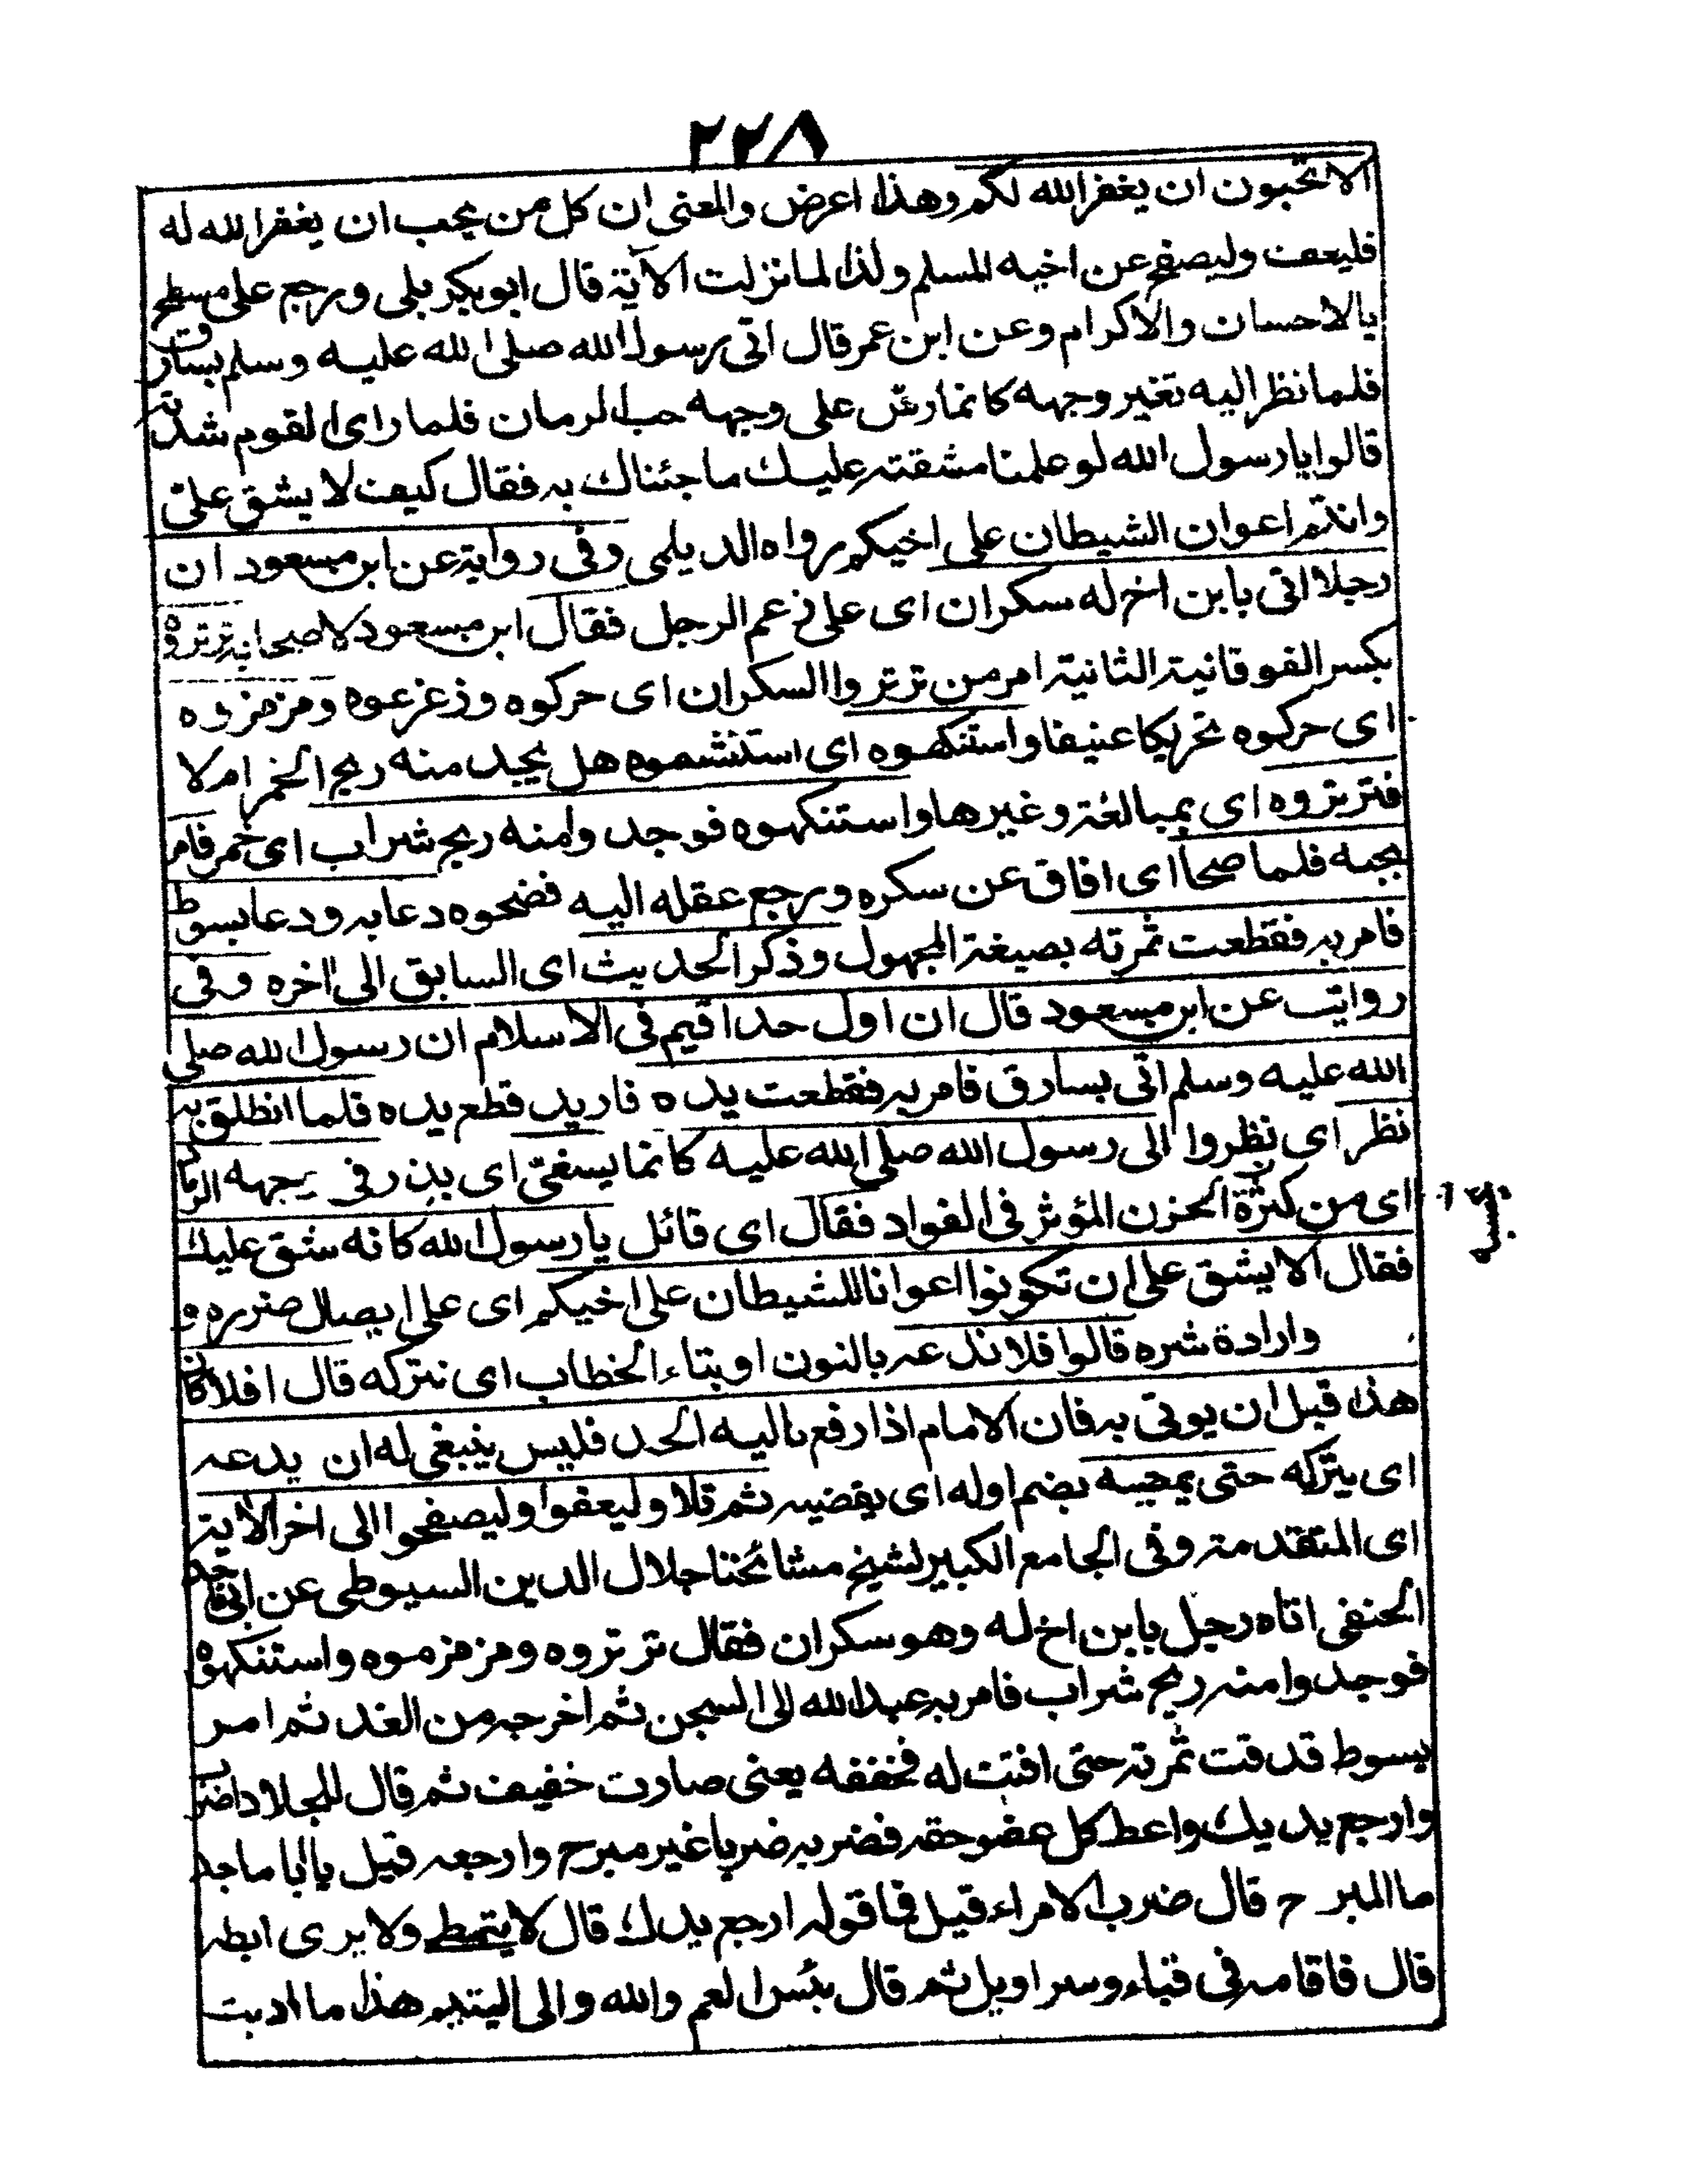 ٢٢٨
الا تحبون ان يغفر الله لكم وهذا اعرض والمعنى ان كل من يحب ان يغفر الله له
فليعف وليصفح عن اخيه المسلم ولذا لما نزلت الآية قال ابو بكر بلى ورجع على مسطح
بالاحسان والاكرام وعن ابن عمر قال اتى رسول الله صلى الله عليه وسلم بسارق
فلما نظر اليه تغير وجهه كانما رش على وجهه حب الرمان فلما راى القوم شدته
قالوا يا رسول الله لو علمنا مشقته عليك ما جئناك به فقال كيف لا يشق على
وانتم اعوان الشيطان على اخيكم رواه الديلمى وفى رواية عن ابن مسعود ان
رجلا اتى بابن اخ له سكران اى على زعم الرجل فقال ابن مسعود لاصحابه ترتروه
بكسر الفوقانية الثانية امر من ترتروا السكران اى حركوه وزعزعوه ومزمزوه
اى حركوه تحريكا عنيفا واستنكهوه اى استنشموه هل يجد منه ريح الخمر ام لا
فترتروه اى بمبالغة وغيرها واستنكهوه فوجدوا منه ريح شراب اى خمر فامر
بحبسه فلما صحا اى افاق عن سكره ورجع عقله اليه فضحوه دعا به ودعا بسوط
فامر به فقطعت ثمرته بصيغة المجهول وذكر الحديث اى السابق الى اخره وفى
رواية عن ابن مسعود قال ان اول حد اقيم فى الاسلام ان رسول الله صلى
الله عليه وسلم اتى بسارق فامر به فقطعت يده فاريد قطع يده فلما انطلق به
نظر اى نظروا الى رسول الله صلى الله عليه كانما يسفى اى يذر فى وجهه الرماد
اى من كثرة الحزن المؤثر فى الفواد فقال اى قائل يا رسول الله كانه شق عليك
فقال الا يشق على ان تكونوا اعوانا للشيطان على اخيكم اى على ايصال ضرره و
وارادة شره قالوا فلا ندعه بالنون او بتاء الخطاب اى نتركه قال افلا كان
هذا قبل ان يوتى به فان الامام اذا رفع اليه الحد فليس ينبغى له ان يدعه
اى يتركه حتى يمضيه بضم اوله اى يقضيه ثم تلا وليعفوا وليصفحوا الى اخر الاية
اى المتقدمة وفى الجامع الكبير لشيخ مشائخنا جلال الدين السيوطى عن ابى ماجد
الحنفى اتاه رجل بابن اخ له وهو سكران فقال ترتروه ومزمزموه واستنكهوه
فوجدوا منه ريح شراب فامر به عبد الله الى السجن ثم اخرجه من الغد ثم امر
بسوط قدقت ثمرته حتى افتت له فخففه يعنى صارت خفيف ثم قال للجلاد اضرب
وارجع يديك واعط كل عضو حقه فضربه ضربا غير مبرح وارجعه قيل يا ابا ماجد
ما المبرح قال ضرب الامراء قيل فما قوله ارجع يدك قال لا يتمطى ولا يرى ابطه
قال فاقامه فى قباء وسراويل ثم قال بئس العم والله والى اليتيم هذا ما ادبت